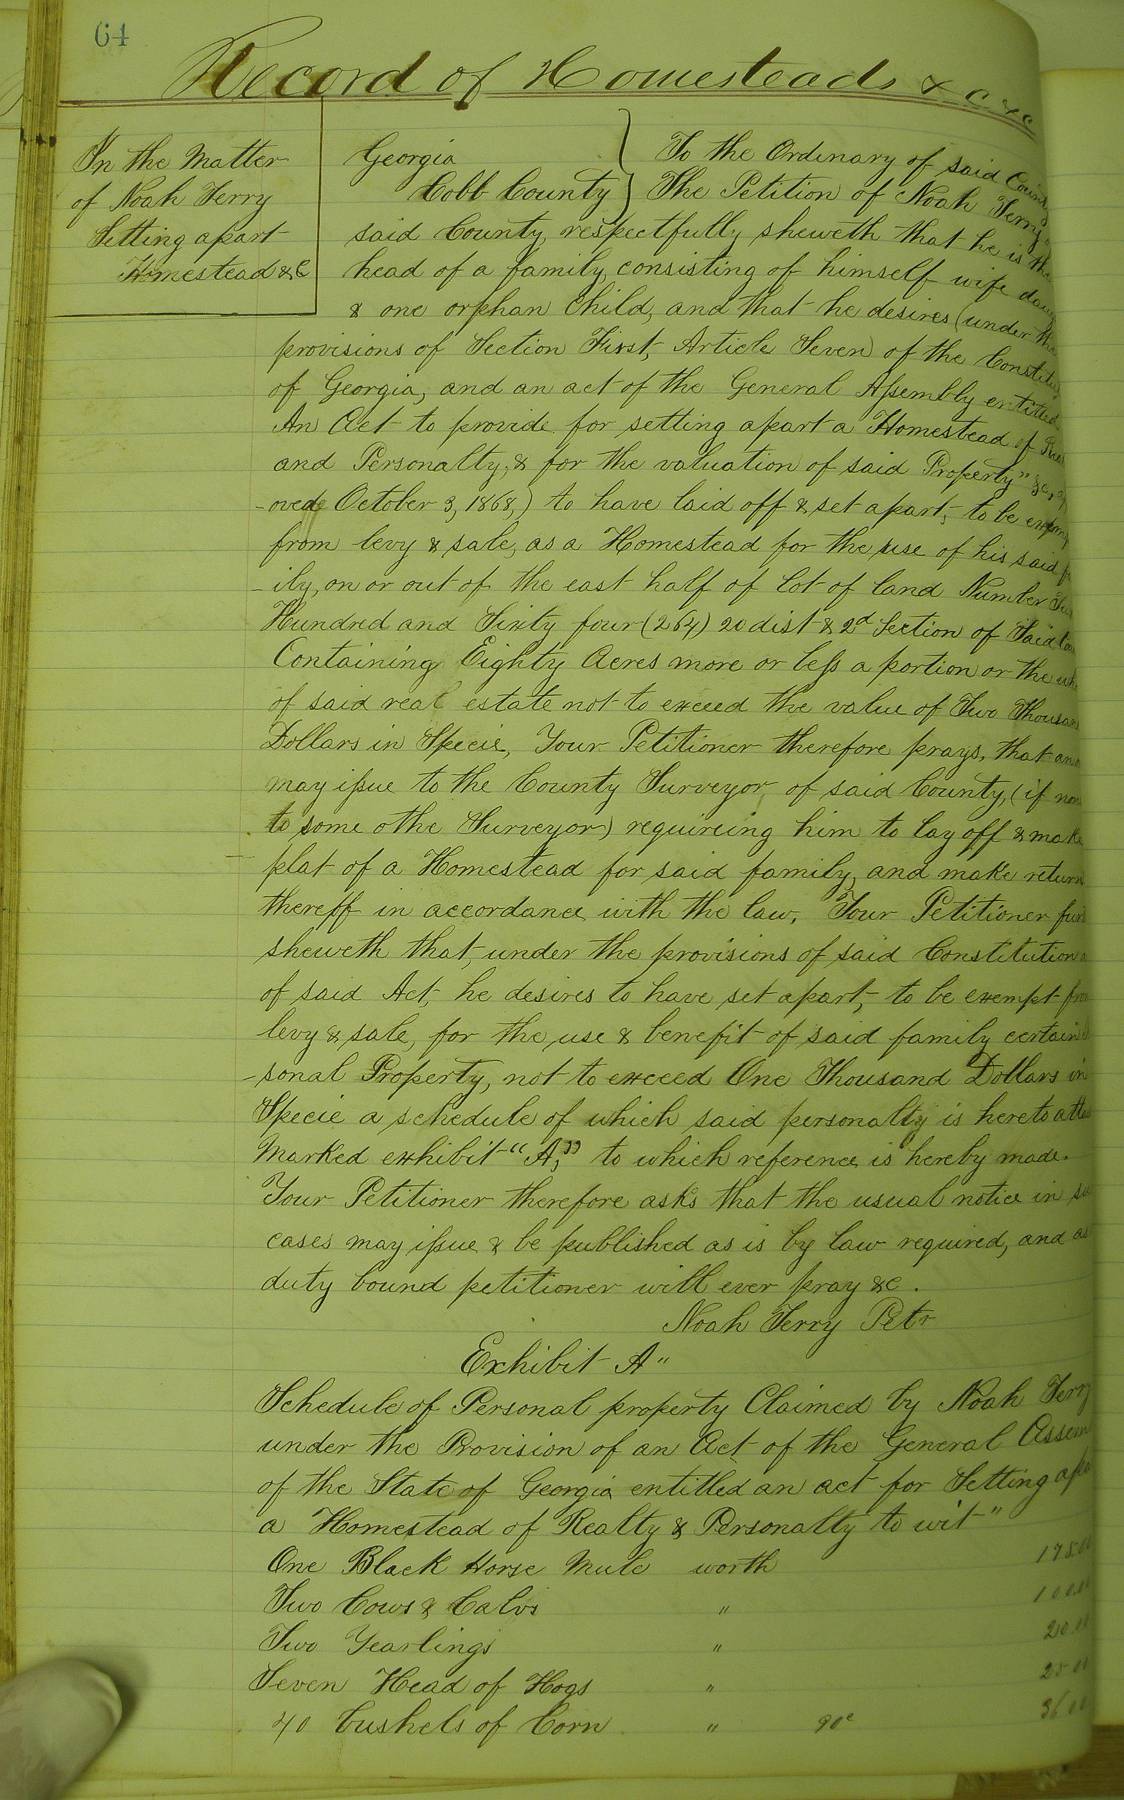 64
Record of Homesteads &c &c
In the Matter
of Noah Terry
Setting apart
Homestead &C
Georgia
Cobb County
To the Ordinary of said
The Petition of Noah Terry
said County, respectfully sheweth that he is the
head of a family, consisting of himself wife
& one orphan Child, and that he desires (under the
provisions of Section First, Article Seven) of the
of Georgia, and an act of the General Assembly entitled
An Act to provide for setting apart a Homestead of
and Personalty, & for the valuation of said Property" &c,
-oved October 3, 1868,) to have laid off & set apart, to be
from levy & sale, as a Homestead for the use of his said
-ily, on or out of the east half of lot of land Number
Hundred and Sixty four (264) 20 dist & 2d Section of Said
Containing Eighty Acres more or less a portion or the
of said real estate not to exceed the value of Two
Dollars in Specie, Your Petitioner therefore prays, that an
may issue to the County Surveyor of said County, (if
to some othe Surveyor) requireing him to lay off & make
plat of a Homestead for said family, and make return
thereff in accordance with the law. Your Petitioner
sheweth that, under the provisions of said Constitution
of said Act, he desires to have set apart, to be exempt
levy & sale, for the use & benefit of said family certain
-sonal Property, not to exceed One Thousand Dollars in
Specie a schedule of which said personalty is hereto
Marked exhibit "A," to which reference is hereby made.
Your Petitioner therefore asks that the usual notice in
cases may issue & be published as is by law required, and as
duty bound petitioner will ever pray &c.
Noah Terry Petr
Exhibit A"
Schedule of Personal property Claimed by Noah Terry
under the Provision of an Act of the General
of the State of Georgia entitled an act for Setting
a Homestead of Realty & Personalty to wit"
One Black Horse Mule worth 175.00
Two Cows & Calvs " 100.00
Two Yearlings " 20.00
Seven Head of Hogs " 25.00
40 bushels of Corn " 90c 36.00